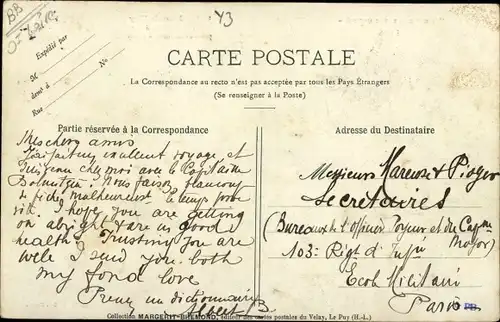 BB
43
Expédié par
M
demt à
Rue
No
CARTE POSTALE
La Correspondance au recto n'est pas acceptée par tous les Pays Étrangers
(Se renseigner à la Poste)
Partie réservée à la Correspondance
Mes chers amis
J'ai fait un excellent voyage et
suis chez moi avec le Capitaine
Nous faison beaucoup
de malheureusement le temps passe
vite. I hope you are getting
on alright & are in good
health. Trusting you are
well I send you both
my fond love
Prenez un dictionnaire
Albert B.
Adresse du Destinataire
Messieurs & Pioger
Secrétaires
(Bureaux de l'Officier Payeur et du
Major)
103e Régt d'Infie
Ecole Militaire
Paris
Collection MARGERIT-BRÉMOND, éditeur des cartes postales du Velay, Le Puy (H.-L.)